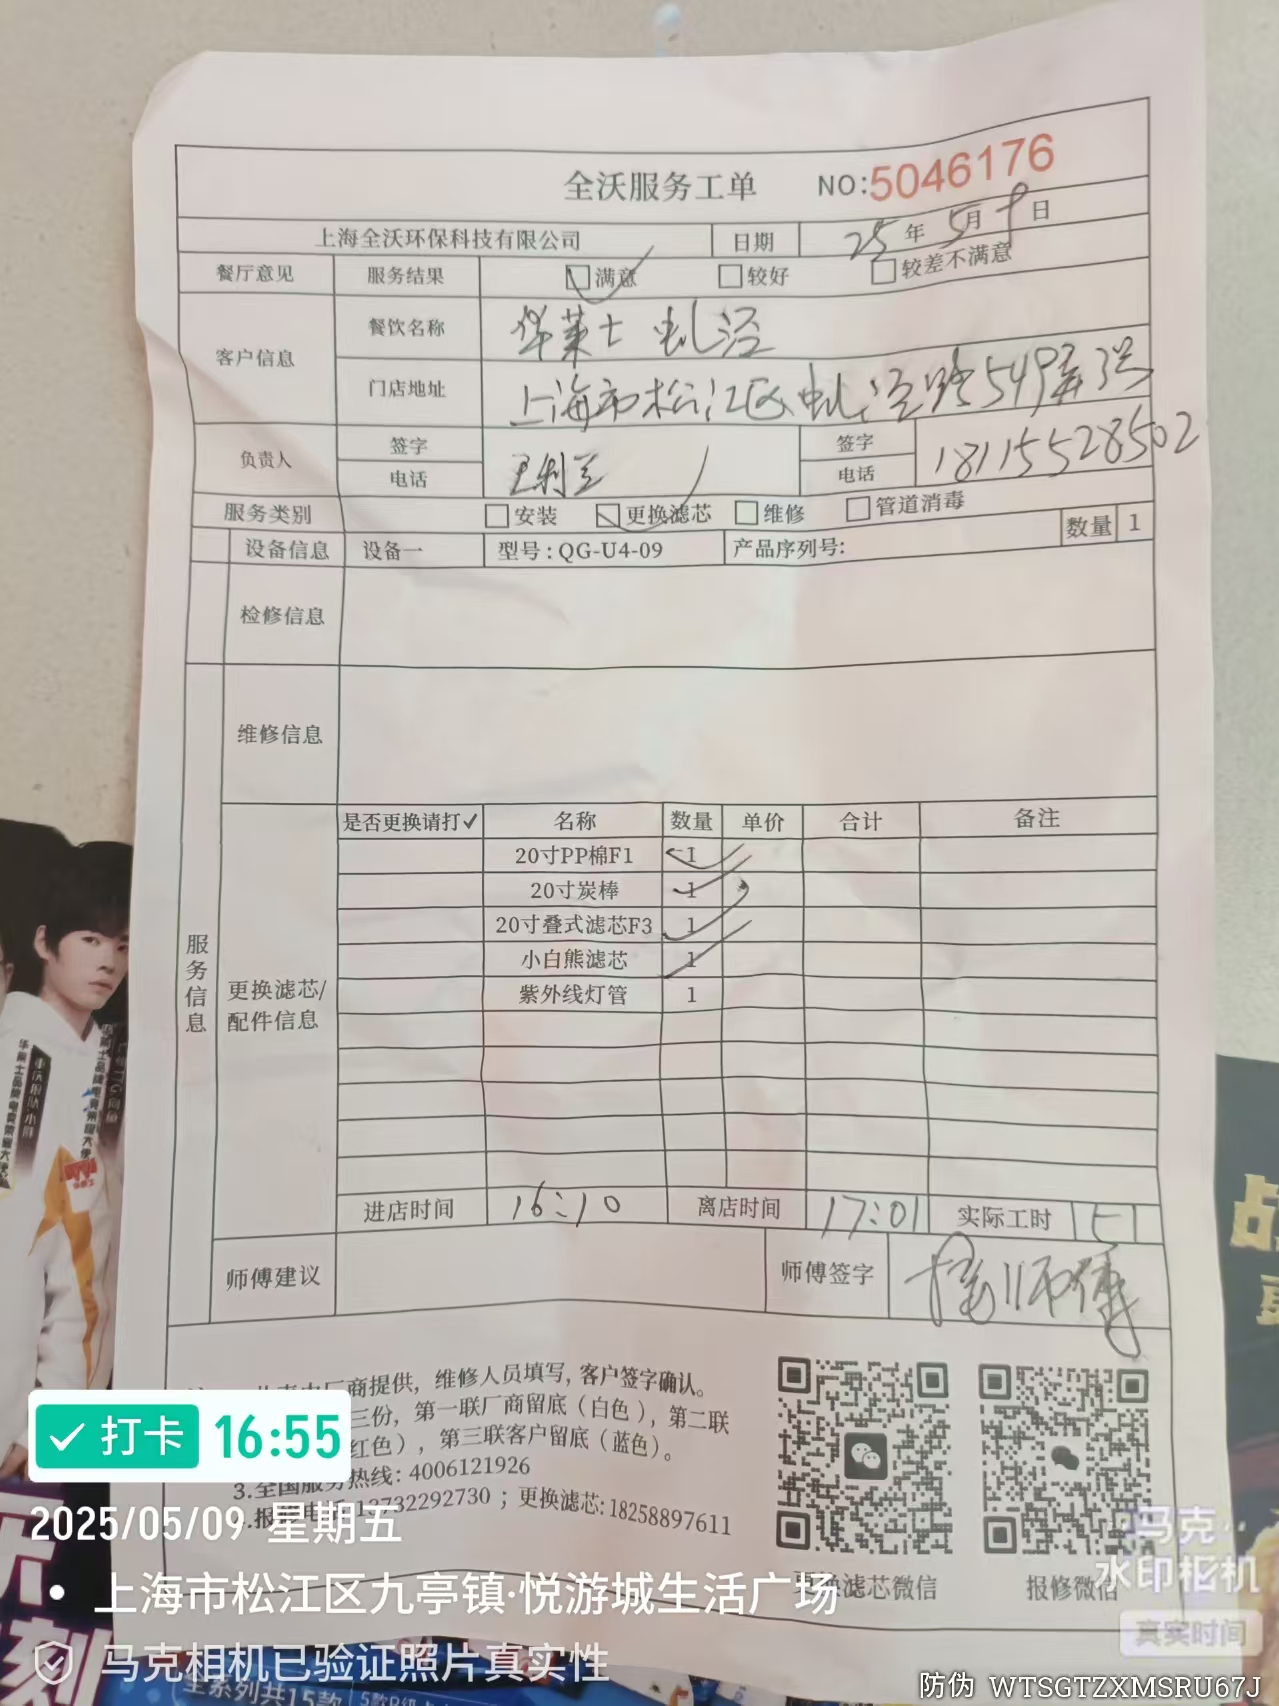 全沃服务工单 NO:5046176
上海全沃环保科技有限公司 日期 25年5月9日
餐厅意见 服务结果 满意 较好 较差不满意
客户信息 餐饮名称 华莱士 虬泾
门店地址 上海市松江区虬泾路549弄3号
负责人 签字 签字
电话 电话 18115528502
服务类别 安装 更换滤芯 维修 管道消毒
设备信息 设备一 型号:QG-U4-09 产品序列号: 数量 1
检修信息
维修信息
服务信息
更换滤芯/
配件信息
是否更换请打✓ 名称 数量 单价 合计 备注
20寸PP棉F1 1
20寸炭棒 1
20寸叠式滤芯F3 1
小白熊滤芯 1
紫外线灯管 1
进店时间 16:10 离店时间 17:01 实际工时 51
师傅建议 师傅签字
厂商提供，维修人员填写，客户签字确认。
三份，第一联厂商留底（白色），第二联
红色），第三联客户留底（蓝色）。
3.全国服务热线：4006121926
13732292730 ；更换滤芯:18258897611
更换滤芯微信 报修微信
打卡 16:55
2025/05/09 星期五
上海市松江区九亭镇·悦游城生活广场
马克相机已验证照片真实性
马克
水印相机
真实时间
防伪 WTSGTZXMSRU67J
全系列共15款